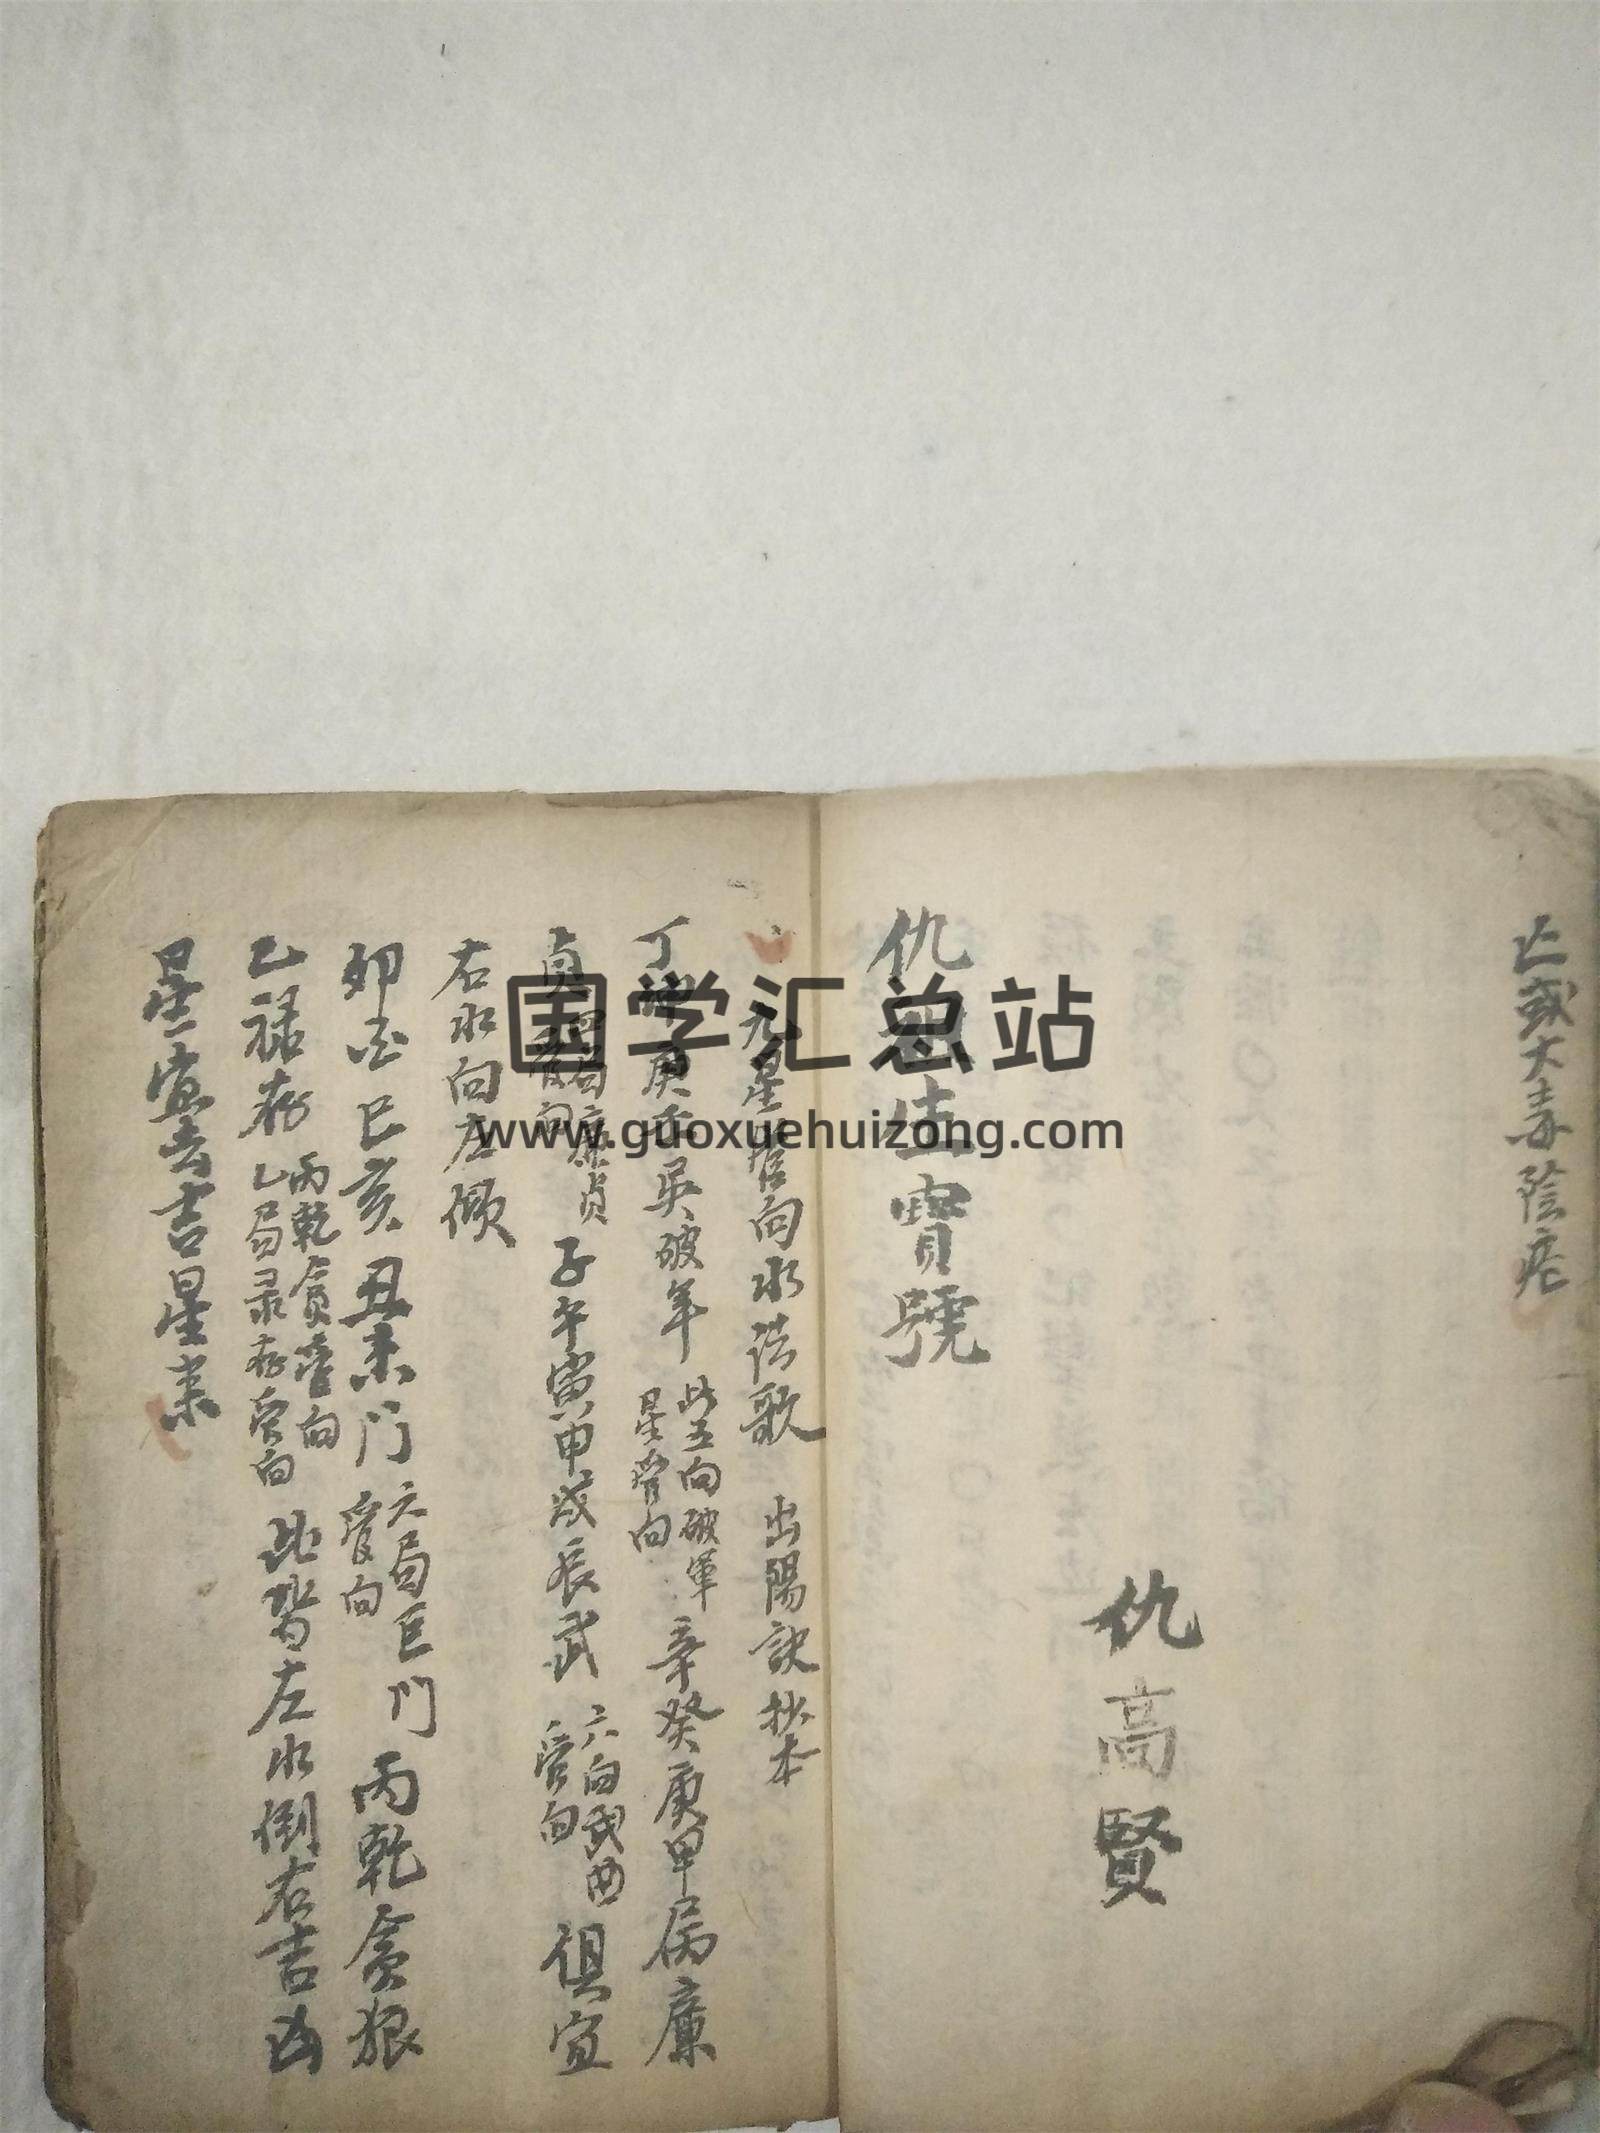 亡或大毒陰疟
仇高賢
仇 生寶號
九星管向水法歌 出陽訣抄本
丁 庚壬吳破年 此五向破軍星管向 辛癸庚甲屬廉
貞 四局廉貞管向 子午寅申戌辰武 六向武曲管向 俱宜
右水向左傾
卯酉巳亥丑未门 六局巨门管向 丙乾貪狼
乙禄存 丙乾貪管向 乙局录存管向 此皆左水倒右吉凶
星宜去吉星来
国学汇总站
www.guoxuehuizong.com